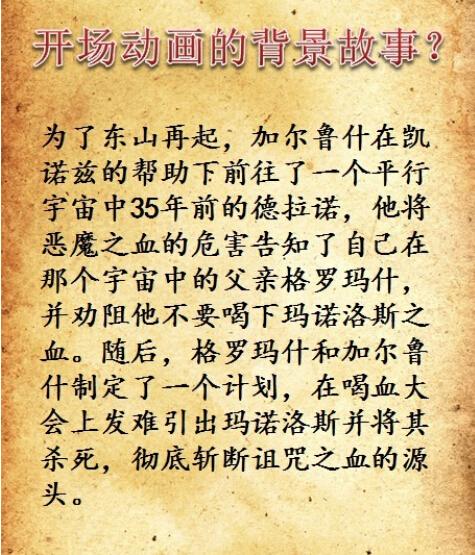 开场动画的背景故事？
为了东山再起，加尔鲁什在凯
诺兹的帮助下前往了一个平行
宇宙中35年前的德拉诺，他将
恶魔之血的危害告知了自己在
那个宇宙中的父亲格罗玛什，
并劝阻他不要喝下玛诺洛斯之
血。随后，格罗玛什和加尔鲁
什制定了一个计划，在喝血大
会上发难引出玛诺洛斯并将其
杀死，彻底斩断诅咒之血的源
头。